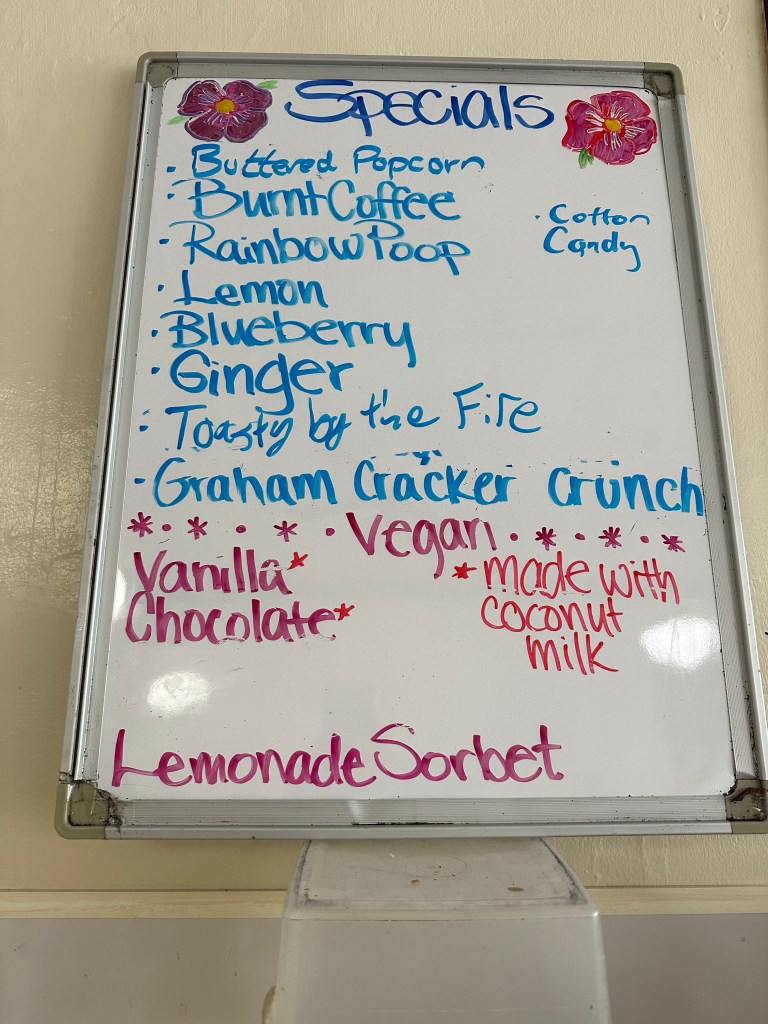 Specials
· Buttered Popcorn
· Burnt Coffee
· Rainbow Poop
· Cotton
Candy
· Lemon
· Blueberry
· Ginger
· Toasty by the Fire
· Graham Cracker Crunch
* · * · * · Vegan · * · * · *
Vanilla*
Chocolate*
* made with
coconut
milk
Lemonade Sorbet